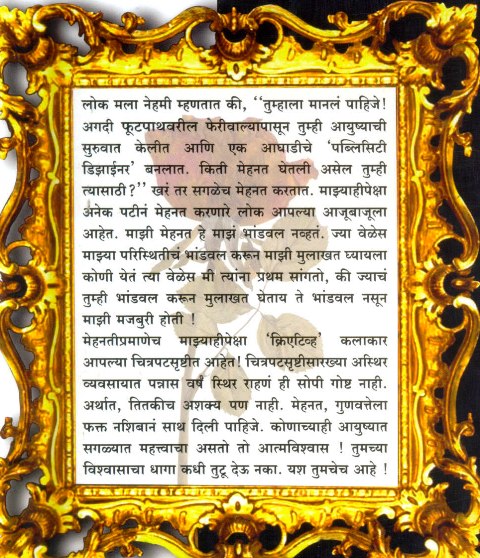 लोक मला नेहमी म्हणतात की, ‘‘तुम्हाला मानलं पाहिजे!
अगदी फूटपाथवरील फेरीवाल्यापासून तुम्ही आयुष्याची
सुरुवात केलीत आणि एक आघाडीचे ‘पब्लिसिटी
डिझाईनर’ बनलात. किती मेहनत घेतली असेल तुम्ही
त्यासाठी?’’ खरं तर सगळेच मेहनत करतात. माझ्याहीपेक्षा
अनेक पटीनं मेहनत करणारे लोक आपल्या आजूबाजूला
आहेत. माझी मेहनत हे माझं भांडवल नव्हतं. ज्या वेळेस
माझ्या परिस्थितीचं भांडवल करून माझी मुलाखत घ्यायला
कोणी येतं त्या वेळेस मी त्यांना प्रथम सांगतो, की ज्याचं
तुम्ही भांडवल करून मुलाखत घेताय ते भांडवल नसून
माझी मजबुरी होती !
मेहनतीप्रमाणेच माझ्याहीपेक्षा ‘क्रिएटिव्ह’ कलाकार
आपल्या चित्रपटसृष्टीत आहेत! चित्रपटसृष्टीसारख्या अस्थिर
व्यवसायात पन्नास वर्षं स्थिर राहणं ही सोपी गोष्ट नाही.
अर्थात, तितकीच अशक्य पण नाही. मेहनत, गुणवत्तेला
फक्त नशिबानं साथ दिली पाहिजे. कोणाच्याही आयुष्यात
सगळ्यात महत्त्वाचा असतो तो आत्मविश्वास ! तुमच्या
विश्वासाचा धागा कधी तुटू देऊ नका. यश तुमचेच आहे !